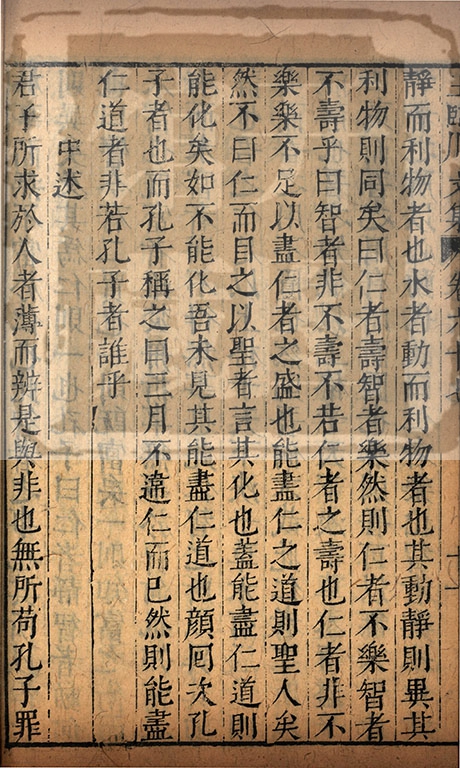 王臨川文集 卷六十七
靜而利物者也水者動而利物者也其動靜則異其
利物則同矣曰仁者壽智者樂然則仁者不樂智者
不壽乎曰智者非不壽不若仁者之壽也仁者非不
樂樂不足以盡仁者之盛也能盡仁之道則聖人矣
然不曰仁而目之以聖者言其化也蓋能盡仁道則
能化矣如不能化吾未見其能盡仁道也顔回次孔
子者也而孔子稱之曰三月不違仁而已然則能盡
仁道者非若孔子者誰乎
中述
君子所求於人者薄而辨是與非也無所苟孔子罪